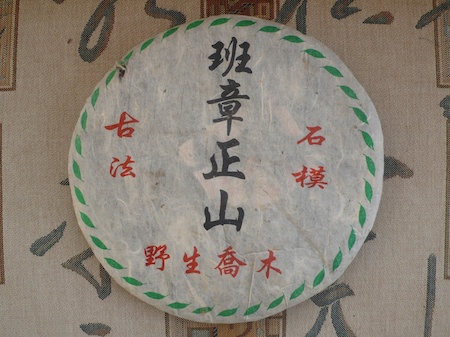 班章正山
古法
石模
野生喬木